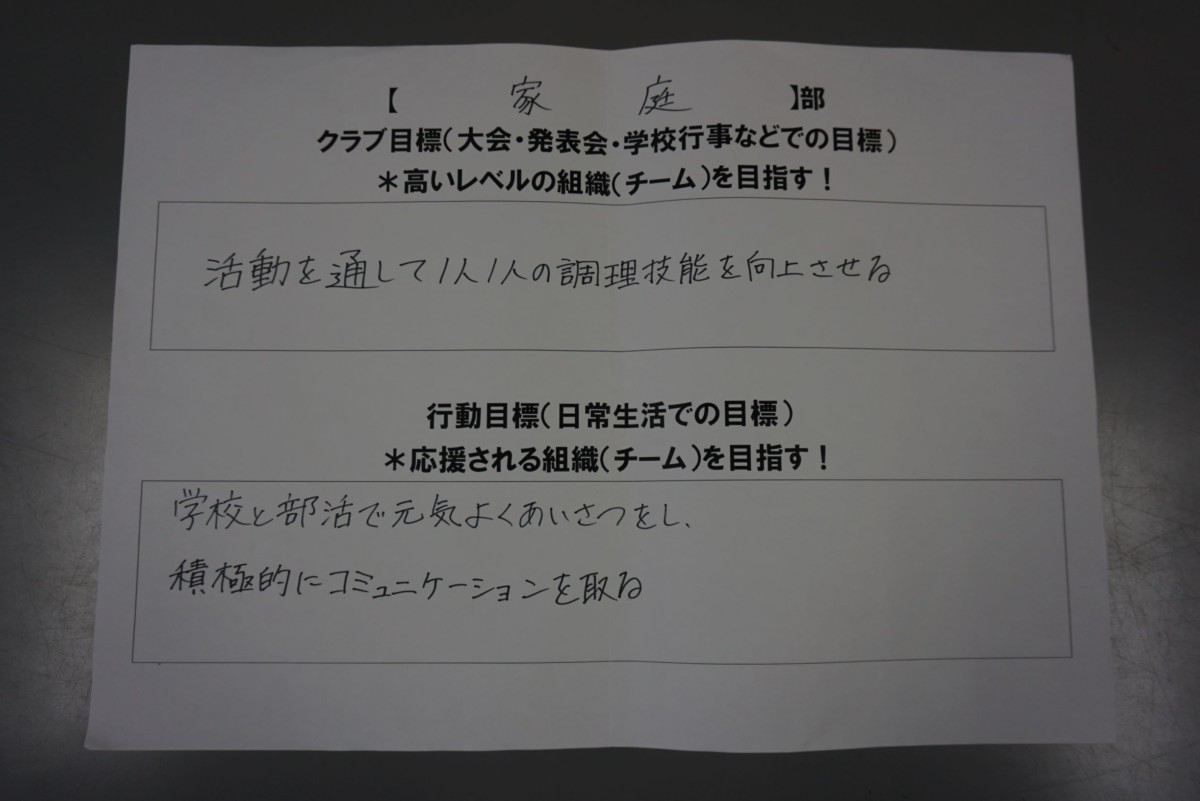 【 家 庭 】部
クラブ目標（大会・発表会・学校行事などでの目標）
＊高いレベルの組織（チーム）を目指す！
活動を通して1人1人の調理技能を向上させる
行動目標（日常生活での目標）
＊応援される組織（チーム）を目指す！
学校と部活で元気よくあいさつをし、
積極的にコミュニケーションを取る